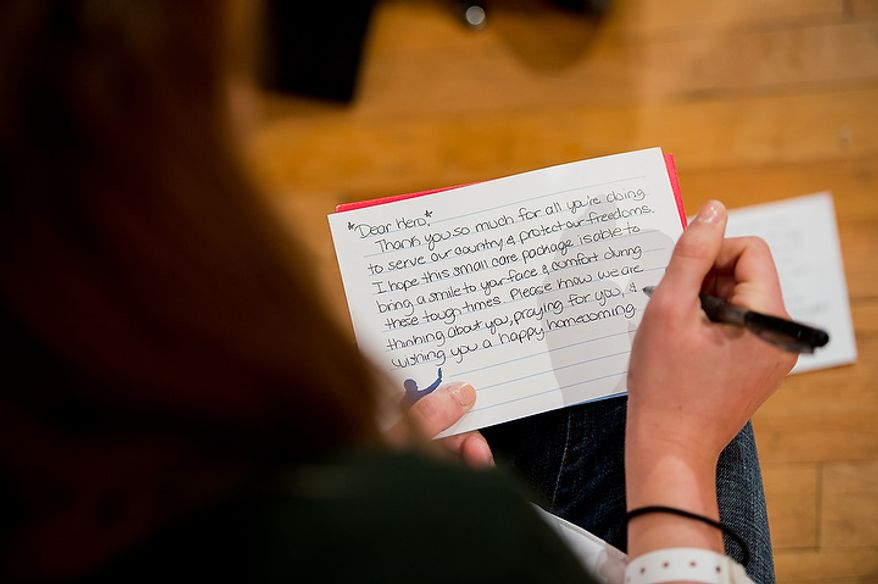 *Dear Hero,*
Thank you so much for all you're doing
to serve our country & protect our freedoms.
I hope this small care package is able to
bring a smile to your face & comfort during
these tough times. Please know we are
thinking about you, praying for you, &
wishing you a happy homecoming.